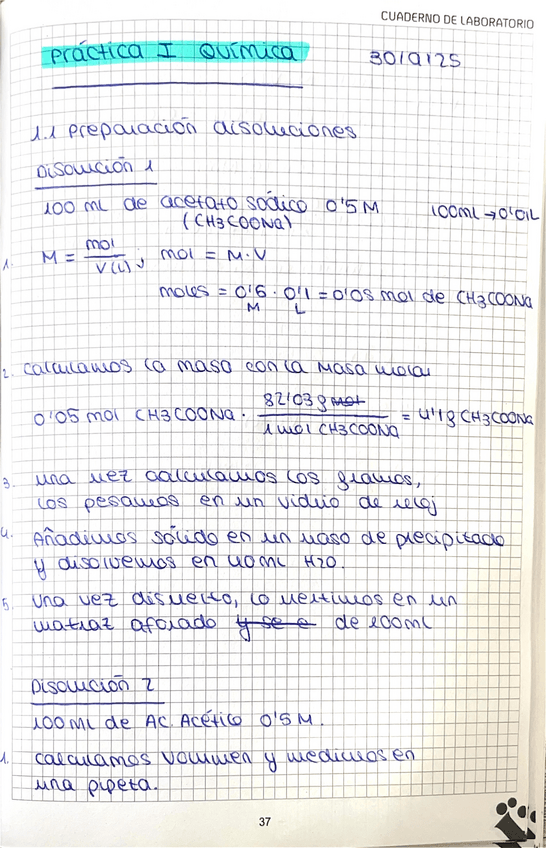 CUADERNO DE LABORATORIO
Práctica I Química 30/9/25
1.1 Preparación disoluciones
Disolución 1
100 ml de acetato sódico 0'5 M 100ml → 0'01L
(CH3COONa)
1. M = mol / V(L), mol = M·V
moles = 0'5 · 0'1 = 0'05 mol de CH3COONa
M L
2. calculamos la masa con la masa molar
0'05 mol CH3COONa · 82'03 g mol / 1 mol CH3COONa = 4'1g CH3COONa
3. una vez calculamos los gramos,
los pesamos en un vidrio de reloj
4. Añadimos sólido en un vaso de precipitado
y disolvemos en 40ml H2O.
5. una vez disuelto, lo vertimos en un
matraz aforado y se e de 100ml
Disolución 2
100 ml de Ac. Acético 0'5 M.
1. calculamos volumen y medimos en
una pipeta.
37